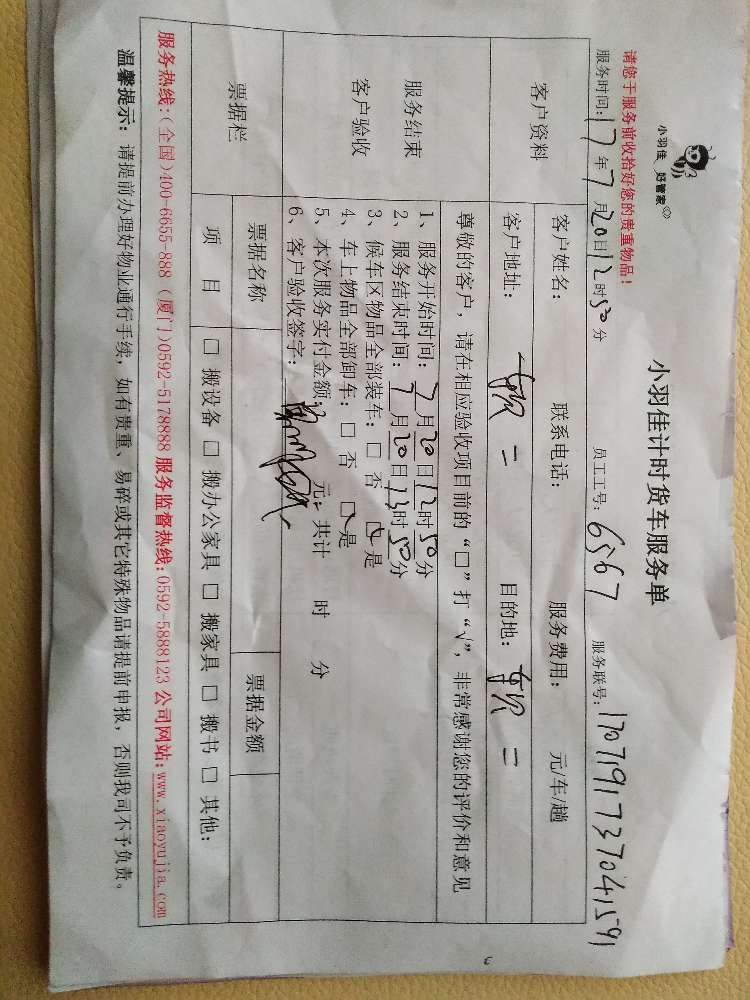 请您于服务前收拾好您的贵重物品！
小羽佳 好管家
小羽佳计时货车服务单
服务时间：17年7月20日12时50分 员工工号：6567 服务联号：1707191737041591
客户资料
客户姓名： 联系电话： 服务费用： 元/车/趟
客户地址： 目的地：
服务结束
客户验收
尊敬的客户，请在相应验收项目前的“□”打“√”，非常感谢您的评价和意见
1、服务开始时间：7月20日12时50分
2、服务结束时间：7月20日13时50分
3、候车区物品全部装车：□ 否 ☑ 是
4、车上物品全部卸车：□ 否 ☑ 是
5、本次服务实付金额： 元；共计 时 分
6、客户验收签字：
票据栏
票据名称 票据金额
项 目 □ 搬设备 □ 搬办公家具 □ 搬家具 □ 搬书 □ 其他：
服务热线：(全国)400-6655-888 (厦门)0592-5178888 服务监督热线：0592-5888123 公司网站：www.xiaoyujia.com
温馨提示：请提前办理好物业通行手续，如有贵重、易碎或其它特殊物品请提前申报，否则我司不予负责。